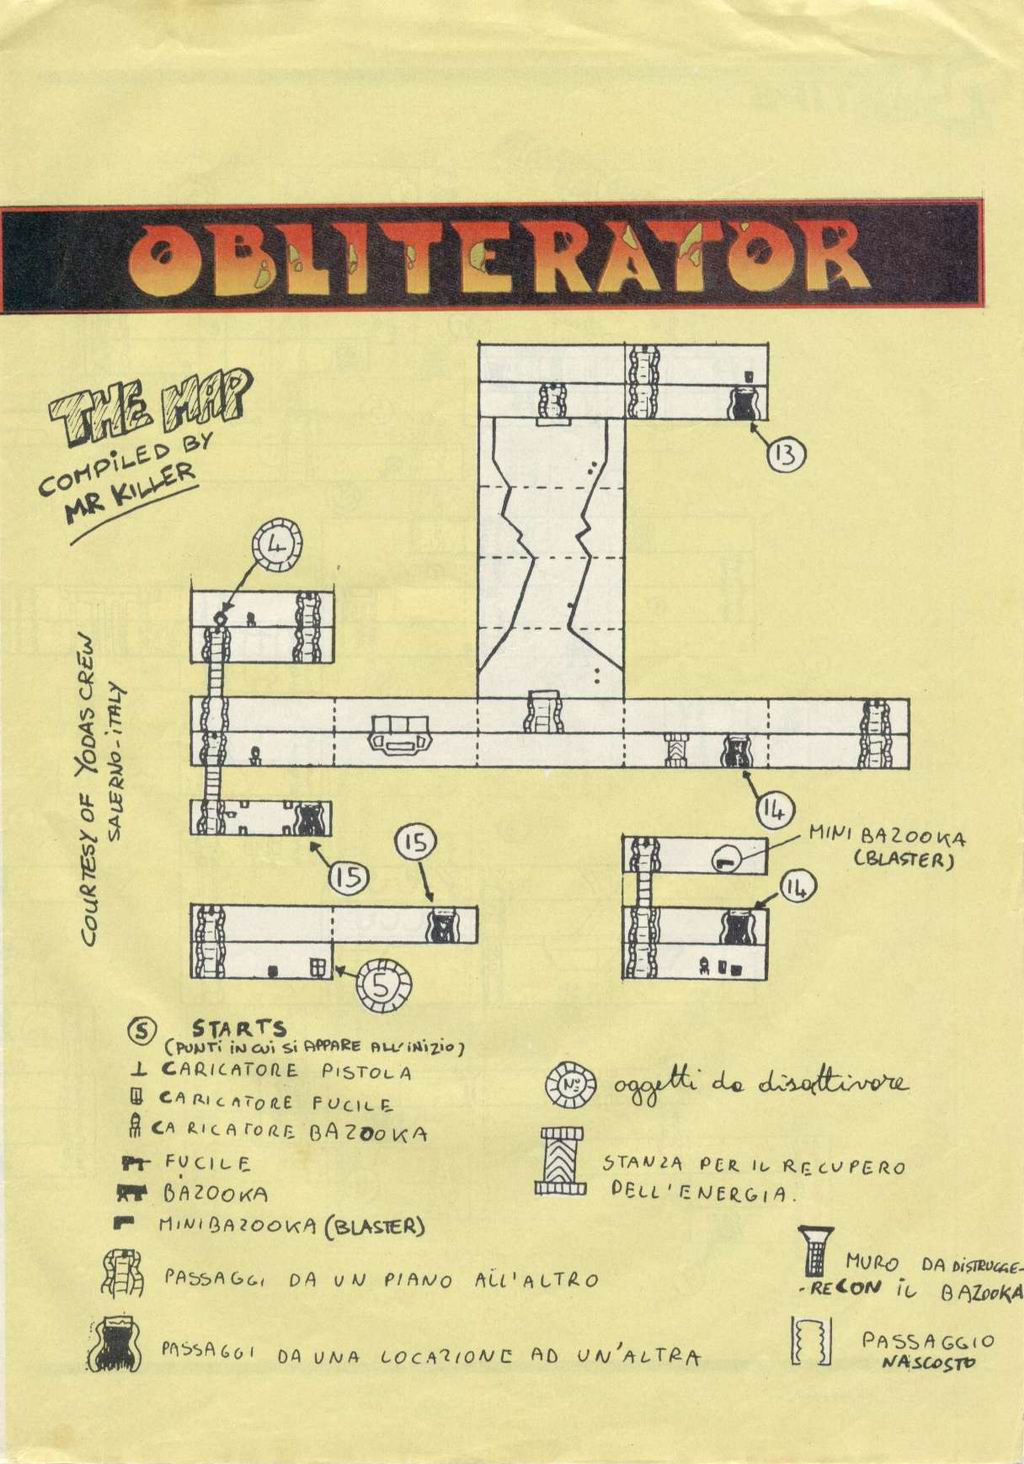 OBLITERATOR
THE MAP
COMPILED BY
MR KILLER
13
4
COURTESY OF YODAS CREW
SALERNO-ITALY
14
15
15
MINI BAZOOKA
(BLASTER)
14
5
S STARTS
(PUNTI IN CUI SI APPARE ALL'INIZIO)
CARICATORE PISTOLA
CARICATORE FUCILE
CARICATORE BAZOOKA
FUCILE
BAZOOKA
MINIBAZOOKA (BLASTER)
PASSAGGI DA UN PIANO ALL'ALTRO
PASSAGGI DA UNA LOCAZIONE AD UN'ALTRA
Nº oggetti da disattivare
STANZA PER IL RECUPERO
DELL'ENERGIA.
MURO DA DISTRUGGE-
-RE CON IL BAZOOKA
PASSAGGIO
NASCOSTO